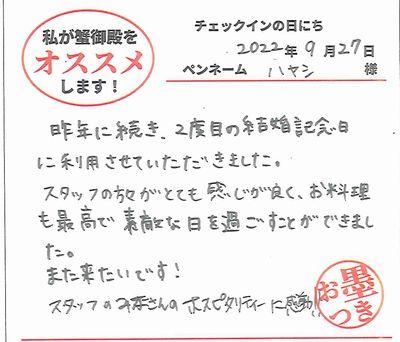 私が蟹御殿を
オススメ
します！
チェックインの日にち
2022年9月27日
ペンネーム ハヤシ 様
昨年に続き、2度目の結婚記念日
に利用させていただきました。
スタッフの方々がとても感じが良く、お料理
も最高で素敵な日を過ごすことができまし
た。
また来たいです！
スタッフの
さんのホスピタリティーに感動!!
お墨つき